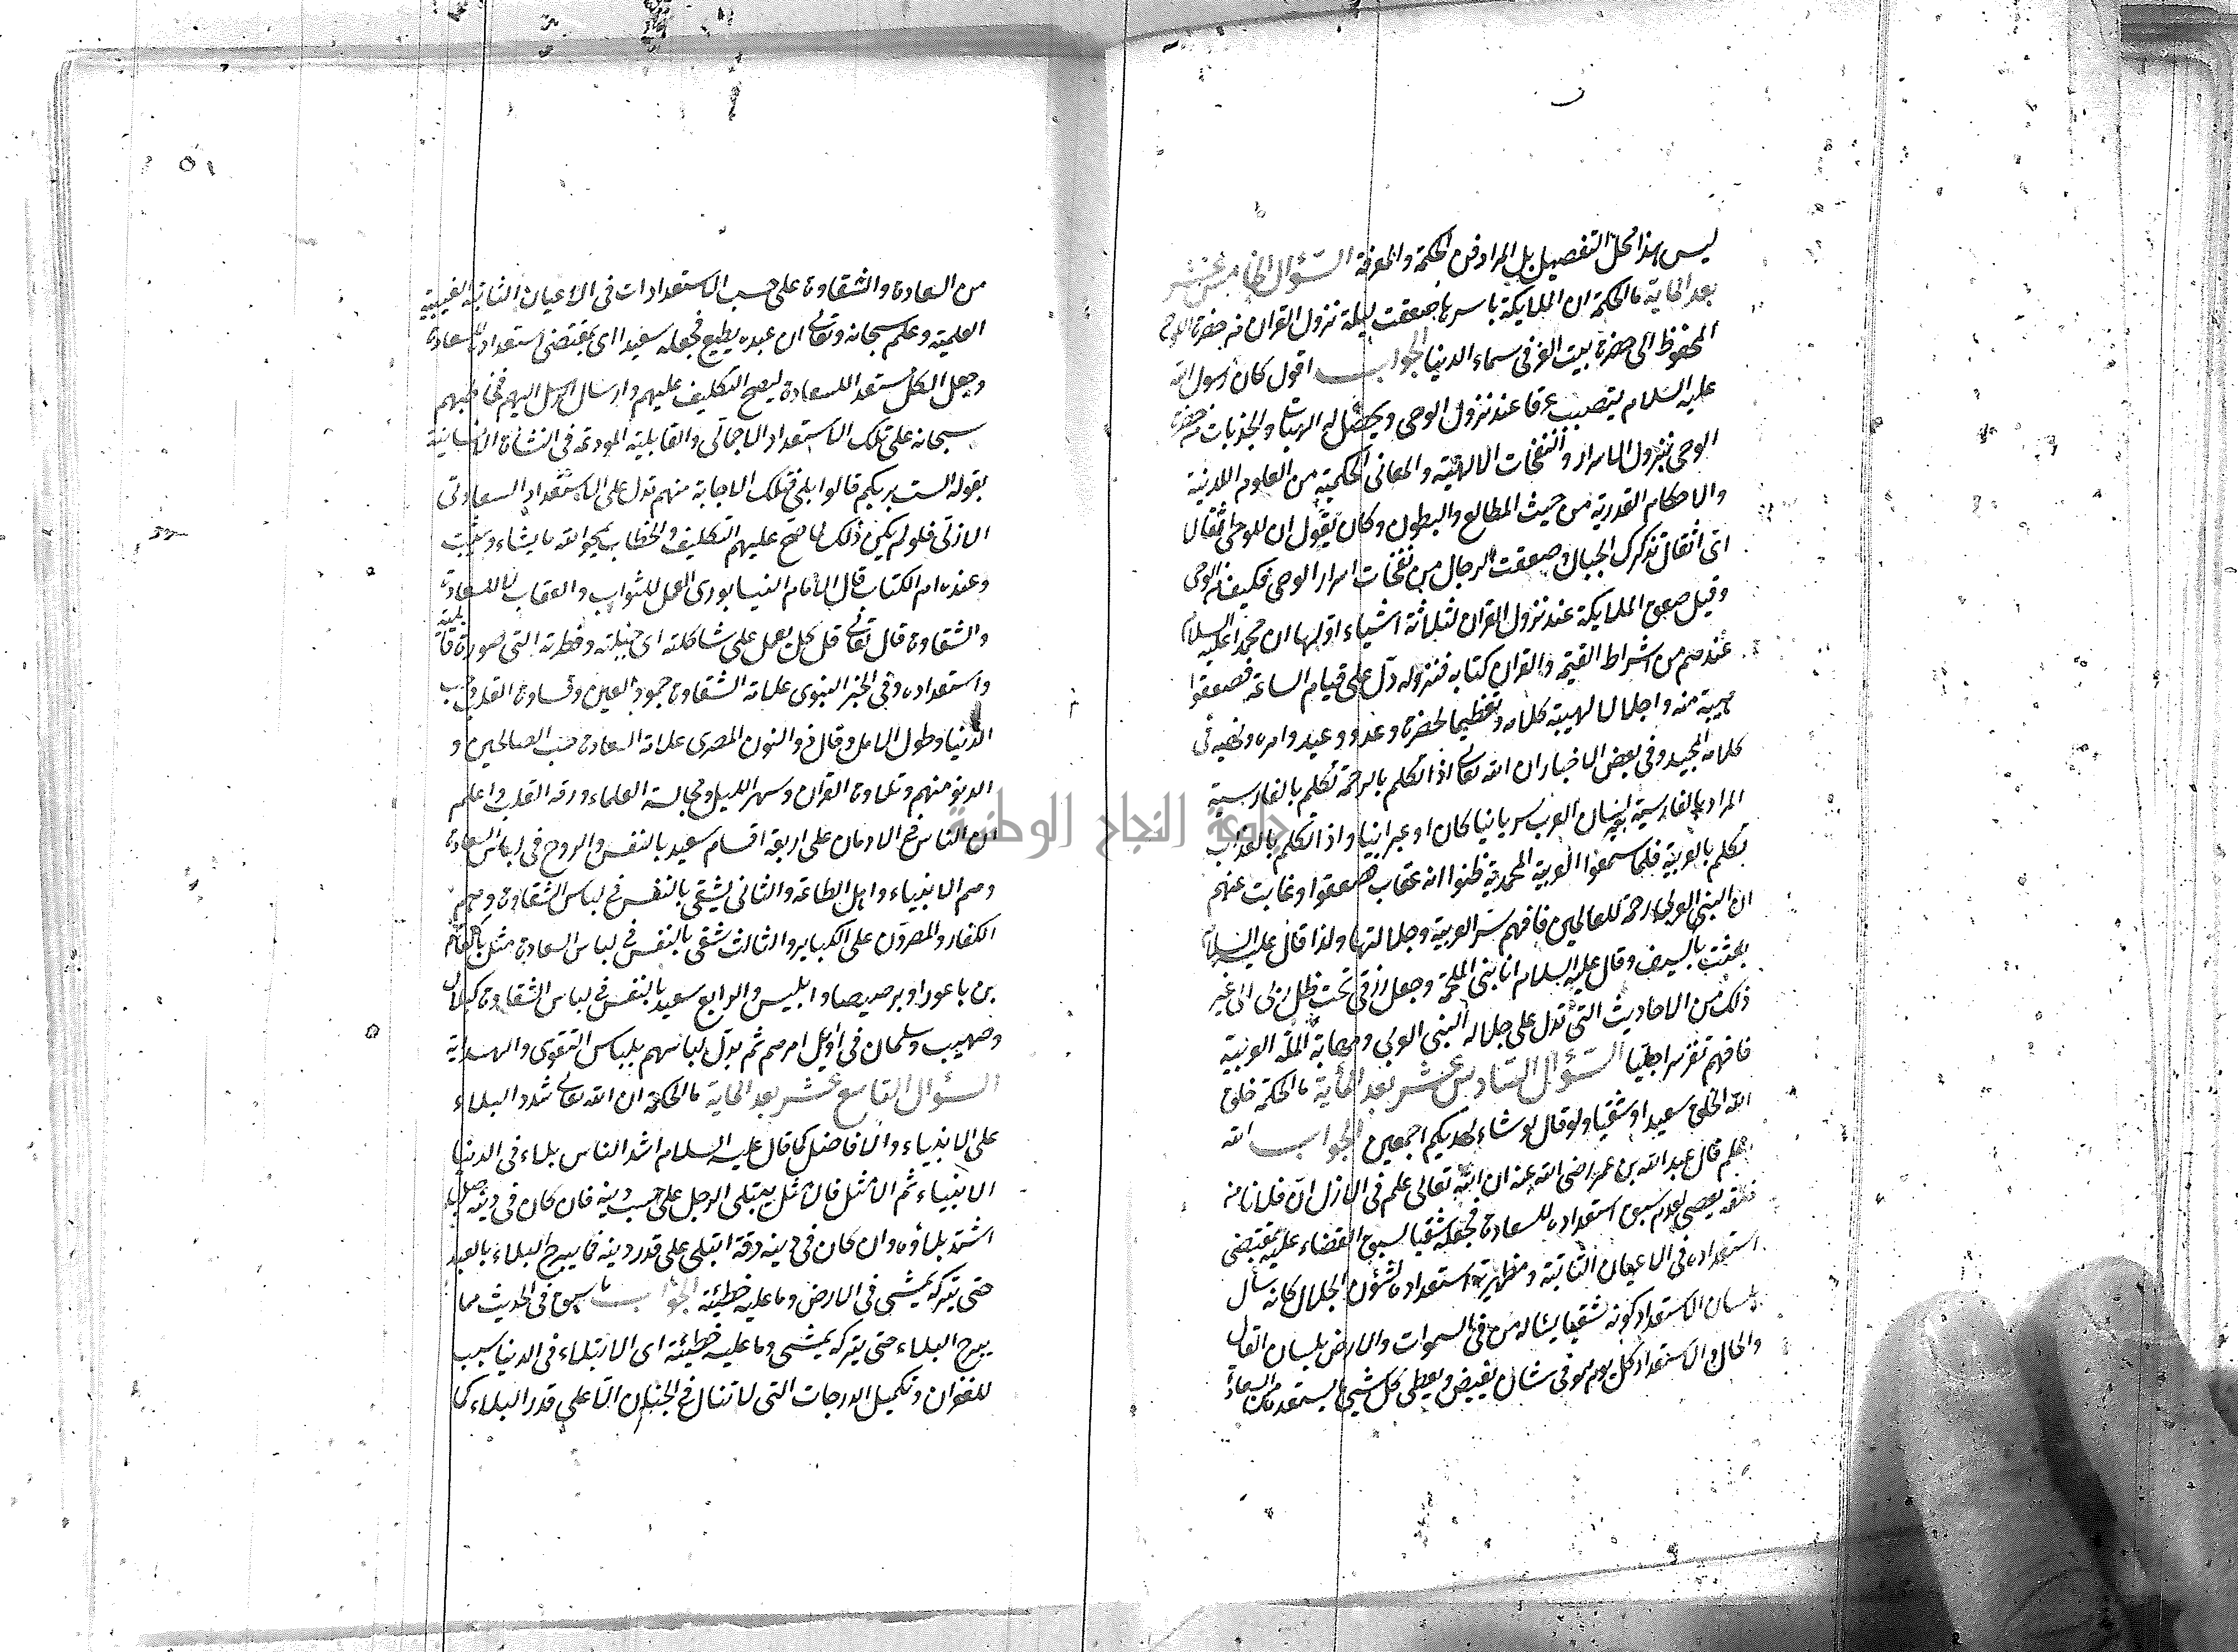 ليس هذا محل التفصيل بل المراد فن الحكمة والمعرفة السؤال الخامس عشر
بعد الماية ما الحكمة ان الملايكة باسرها صعقت ليلة نزول القران من حضرة اللوح
المحفوظ الى حضرة بيت العز فى سماء الدنيا الجواب اقول كان رسول الله
عليه السلام يتصبب عرقا عند نزول الوحى ويحصل له الهيبات والجذبات من حضرة
الوحى بنزول الاسرار والنفخات الالهية والمعانى الحكمية من العلوم اللدنية
والاحكام القدرية من حيث المطالع والبطون وكان يقول ان للوحى ثقالا
اتى اثقال تدكدك الجبال وصعقت الرجال من نفخات اسرار الوحى فكيف الوحى
وقيل صعق الملايكة عند نزول القران لثلاثة اشياء اولها ان محمدا عليه السلام
عندهم من اشراط القيمة والقران كتابه فنزوله دل على قيام الساعة فصعقوا
هيبة منه واجلالا لهيبة كلامه وتعظيما لحضرة وعد ووعيد وامره ونهيه فى
كلامه المجيد وفى بعض الاخبار ان الله تعالى اذا تكلم بالرحمة تكلم بالفارسية
المراد بالفارسية لسان العرب سريانيا كان او عبرانيا واذا تكلم بالعذاب
تكلم بالعربية فلما سمعوا العربية المحمدية ظنوا انه عقاب فصعقوا وغابت عنهم
ان النبى العربى رحمة للعالمين فافهم سر العربية وجلالتها ولذا قال عليه السلام
بعثت بالسيف وقال عليه السلام انا نبى الملحمة وجعل رزقى تحت ظل الى غير
ذلك من الاحاديث التى تدل على جلالة النبى العربى ومهابة الملة العربية
فافهم تفز سرا جليا السؤال السادس عشر بعد الماية ما الحكمة خلق
الله الخلق سعيدا وشقيا ولو قال لو شاء لهديكم اجمعين الجواب الله
اعلم قال عبد الله بن عمر رضى الله عنه ان الله تعالى علم فى الازل ان فلانا منه
خلقه يعصى لعدم سبق استعداده للسعادة فجعله شقيا لسبق القضاء عليه بمقتضى
استعداده فى الاعيان الثابتة ومظهرية استعداده لشؤن الجلال كانه سأل
بلسان الاستعداد كونه شقيا يسأله من فى السموات والارض بلسان القال
والحال والاستعداد كل يوم هو فى شان يفيض ويعطى كل شيئ يستعد من السعادة
٥١
من السعادة والشقاوة على حسب الاستعدادات فى الاعيان الثابتة الغيبية
العلمية وعلم سبحانه وتعالى ان عبده يطيع فجعله سعيدا اى بمقتضى استعداده للسعادة
وجعل الكل مستعدا للسعادة ليصح التكليف عليهم وارسال الرسل اليهم فخاطبهم
سبحانه على تلك الاستعداد الاجمالى والقابلية المودعة فى النشاة الانسانية
بقوله الست بربكم قالوا بلى فتلك الاجابة منهم تدل على الاستعداد السعادتى
الازلى فلو لم يكن ذلك لما صح عليهم التكليف والخطاب يمحو الله ما يشاء ويثبت
وعنده ام الكتاب قال الامام النيسابورى العمل للثواب والعقاب لا للسعادة
والشقاوة قال تعالى قل كل يعمل على شاكلته اى جبلته وفطرته التى صورة قابليته
واستعداده وفى الخبر النبوى علامة الشقاوة جمود العين وقساوة القلب وحب
الدنيا وطول الامل وقال ذو النون المصرى علامة السعادة حب الصالحين و
الدنو منهم وتلاوة القران وسهر الليل ومجالسة العلماء ورقة القلب واعلم
ان الناس فى الازمان على اربعة اقسام سعيد بالنفس والروح فى لباس السعادة
وهم الانبياء واهل الطاعة والثانى شقى بالنفس فى لباس الشقاوة وهم
الكفار والمصرون على الكباير والثالث شقى بالنفس فى لباس السعادة مثل بلعام
بن باعورا وبرصيصا وابليس والرابع سعيد بالنفس فى لباس الشقاوة كبلال
وصهيب وسلمان فى اوايل امرهم ثم بدل لباسهم بلباس التقوى والهداية
السؤال التاسع عشر بعد الماية ما الحكمة ان الله تعالى شدد البلاء
على الانبياء والافاضل كما قال عليه السلام اشد الناس بلاء فى الدنيا
الانبياء ثم الامثل فالامثل يبتلى الرجل على حسب دينه فان كان فى دينه صلبا
اشتد بلاؤه وان كان فى دينه رقة ابتلى على قدر دينه فما يبرح البلاء بالعبد
حتى يتركه يمشى فى الارض وما عليه خطيئة الجواب ما سبق فى الحديث مما
يبرح البلاء حتى يتركه يمشى وما عليه خطيئة اى الابتلاء فى الدنيا سبب
للغفران وتكميل الدرجات التى لا تنال فى الجنان الا على قدر البلاء كما
جامعة النجاح الوطنية